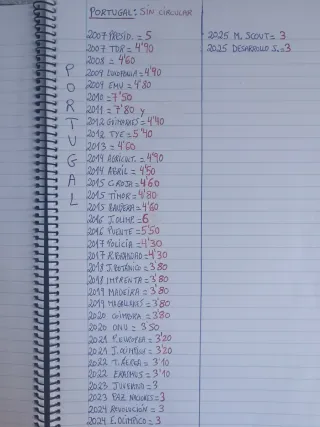 PORTUGAL: SIN CIRCULAR
PORTUGAL
2007 PRESID. = 5
2007 TDR = 4'90
2008 = 4'60
2009 LUSOFONIA = 4'90
2009 EMU = 4'80
2010 = 7'50
2011 = 7'80 y
2012 GUIMARAES = 4'40
2012 TYE = 5'40
2013 = 4'60
2014 AGRICULT. = 4'90
2014 ABRIL = 4'50
2015 C.ROJA = 4'60
2015 TIMOR = 4'80
2015 BANDERA = 4'60
2016 J.OLIMP. = 6
2016 PUENTE = 5'50
2017 POLICÍA = 4'30
2017 R.BRANDAO = 4'30
2018 J.BOTÁNICO = 3'80
2018 IMPRENTA = 3'80
2019 MADEIRA = 3'80
2019 MAGALLANES = 3'80
2020 COIMBRA = 3'80
2020 ONU = 3'50
2021 P.EUROPEA = 3'20
2021 J.OLÍMPICOS = 3'20
2022 T.AEREA = 3'10
2022 ERASMUS = 3'10
2023 JUVENTUD = 3
2023 PAZ NACIONES = 3
2024 REVOLUCIÓN = 3
2024 E.OLÍMPICO = 3
2025 M. SCOUT = 3
2025 DESARROLLO S. = 3